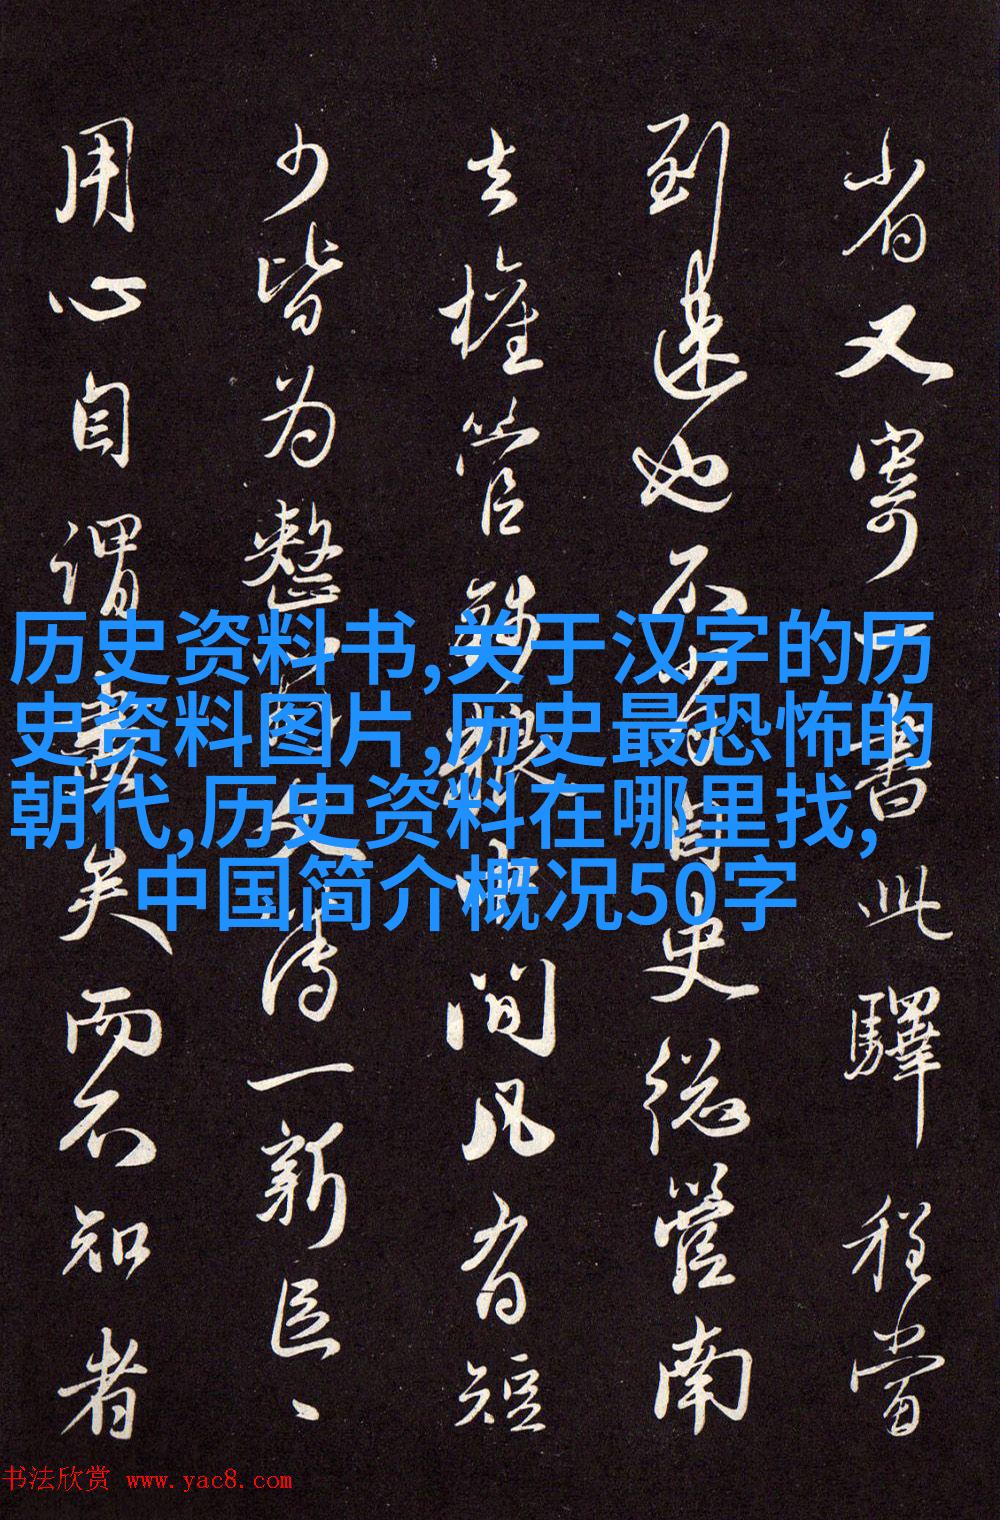 省又寄一书此驛程當
到達也不
自史從營南
去權管
間凡有短
少皆为整
文傳一新臣、
用心自謂
矣而不知者
历史资料书,关于汉字的历
史资料图片,历史最恐怖的
朝代,历史资料在哪里找,
中国简介概况50字
书法欣赏 www.yac8.com